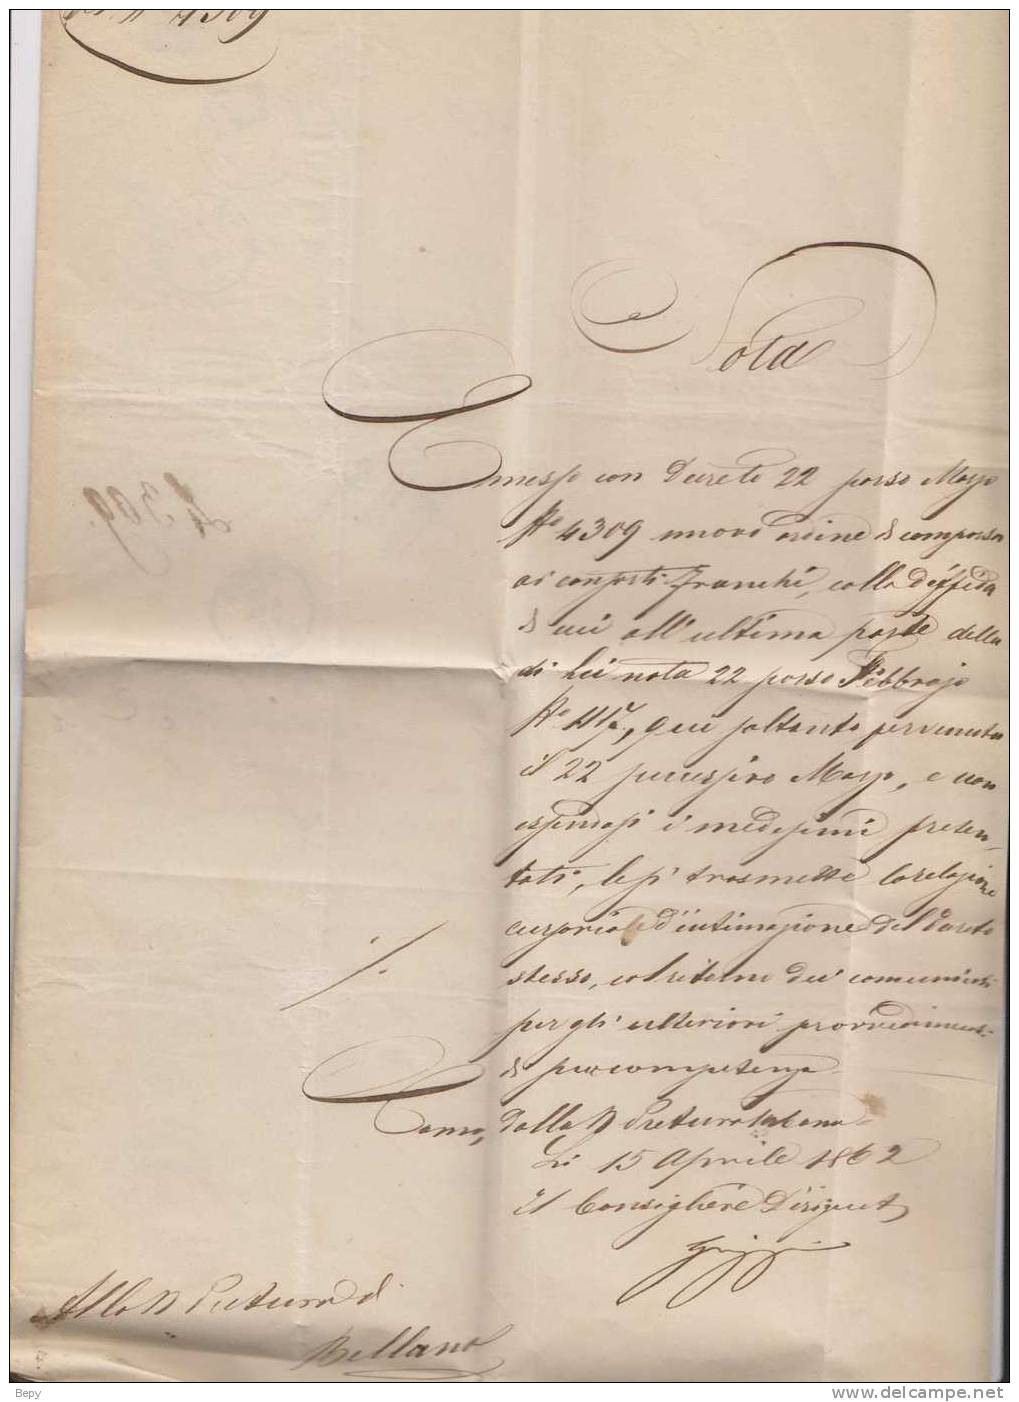 N° 4309
Nota
Emesso con Decreto 22 passo Marzo
N° 4309 nuovo ordine di comparsa
ai consorti Franchi, colla diffida
di cui all'ultima parte della
di Lei nota 22 passo Febbrajo
N° qui soltanto pervenuta
il 22 Marzo, e non
essendosi i medesimi presen-
tati, le si trasmette la relazione
cursoriale d'intimazione del Decreto
stesso, col ritorno dei comunicati
per gli ulteriori provvedimenti
di sua competenza.
Como, Dalla R Pretura Urbana
Li 15 Aprile 1862
Il Consigliere Dirigente
Alla R Pretura di
Bellano
4309.
Bepy
www.delcampe.net